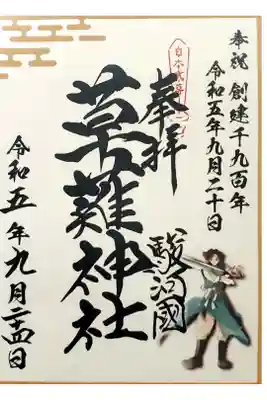 奉祝 創建千九百年
令和五年九月二十日
奉拝
駿河國
草薙神社
令和五年九月二十四日